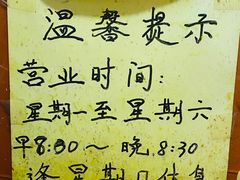 温馨提示
营业时间:
星期一至星期六
早8:30～晚8:30
逢星期日休息